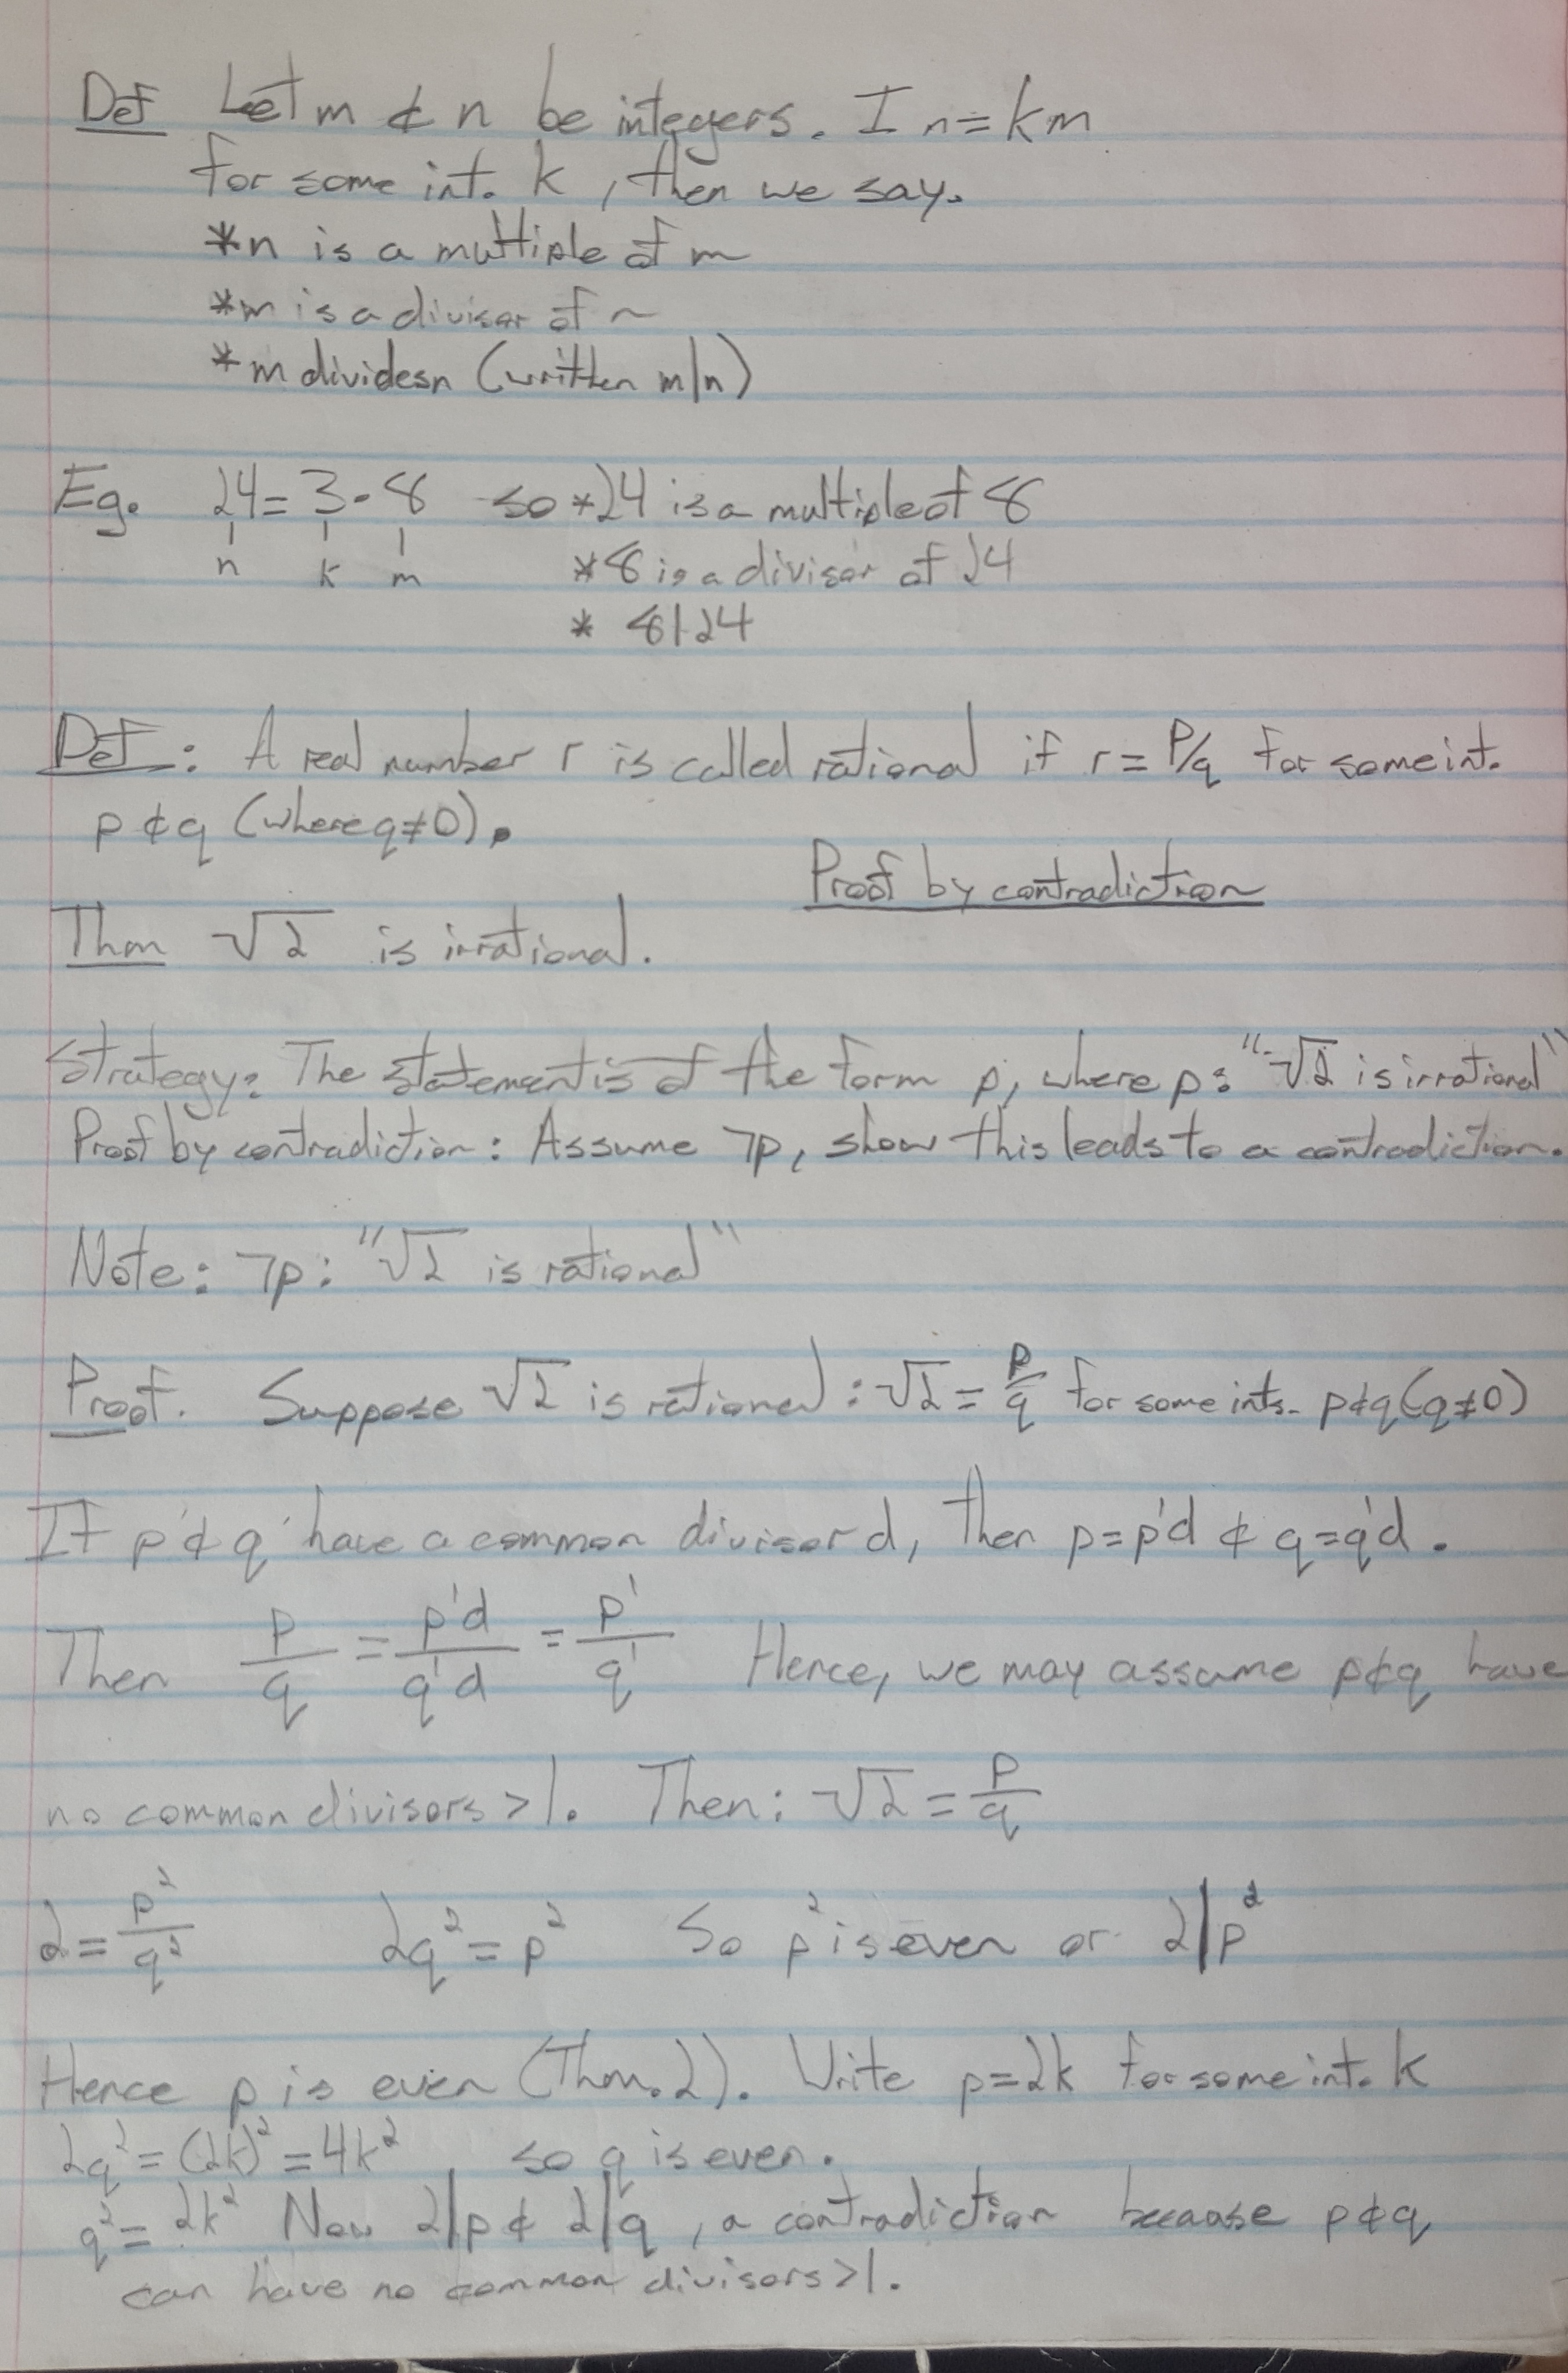 Def Let m & n be integers. I n = km
for some int. k, then we say.
*n is a multiple of m
*m is a divisor of n
*m divides n (written m|n)
Eg. 24 = 3 · 8 so *24 is a multiple of 8
n k m *8 is a divisor of 24
* 8|24
Def: A real number r is called rational if r = p/q for some int.
p & q (where q≠0).
Proof by contradiction
Thm √2 is irrational.
Strategy: The statement is of the form p, where p: "√2 is irrational"
Proof by contradiction: Assume ¬p, show this leads to a contradiction.
Note: ¬p: "√2 is rational"
Proof. Suppose √2 is rational: √2 = p/q for some ints. p & q (q≠0)
If p & q have a common divisor d, then p = p'd & q = q'd.
Then p/q = p'd/q'd = p'/q' Hence, we may assume p & q have
no common divisors > 1. Then: √2 = p/q
2 = p²/q² 2q² = p² So p² is even or 2|p²
Hence p is even (Thm. 2). Write p = 2k for some int. k
2q² = (2k)² = 4k² so q is even.
q² = 2k² Now 2|p & 2|q, a contradiction because p & q
can have no common divisors > 1.